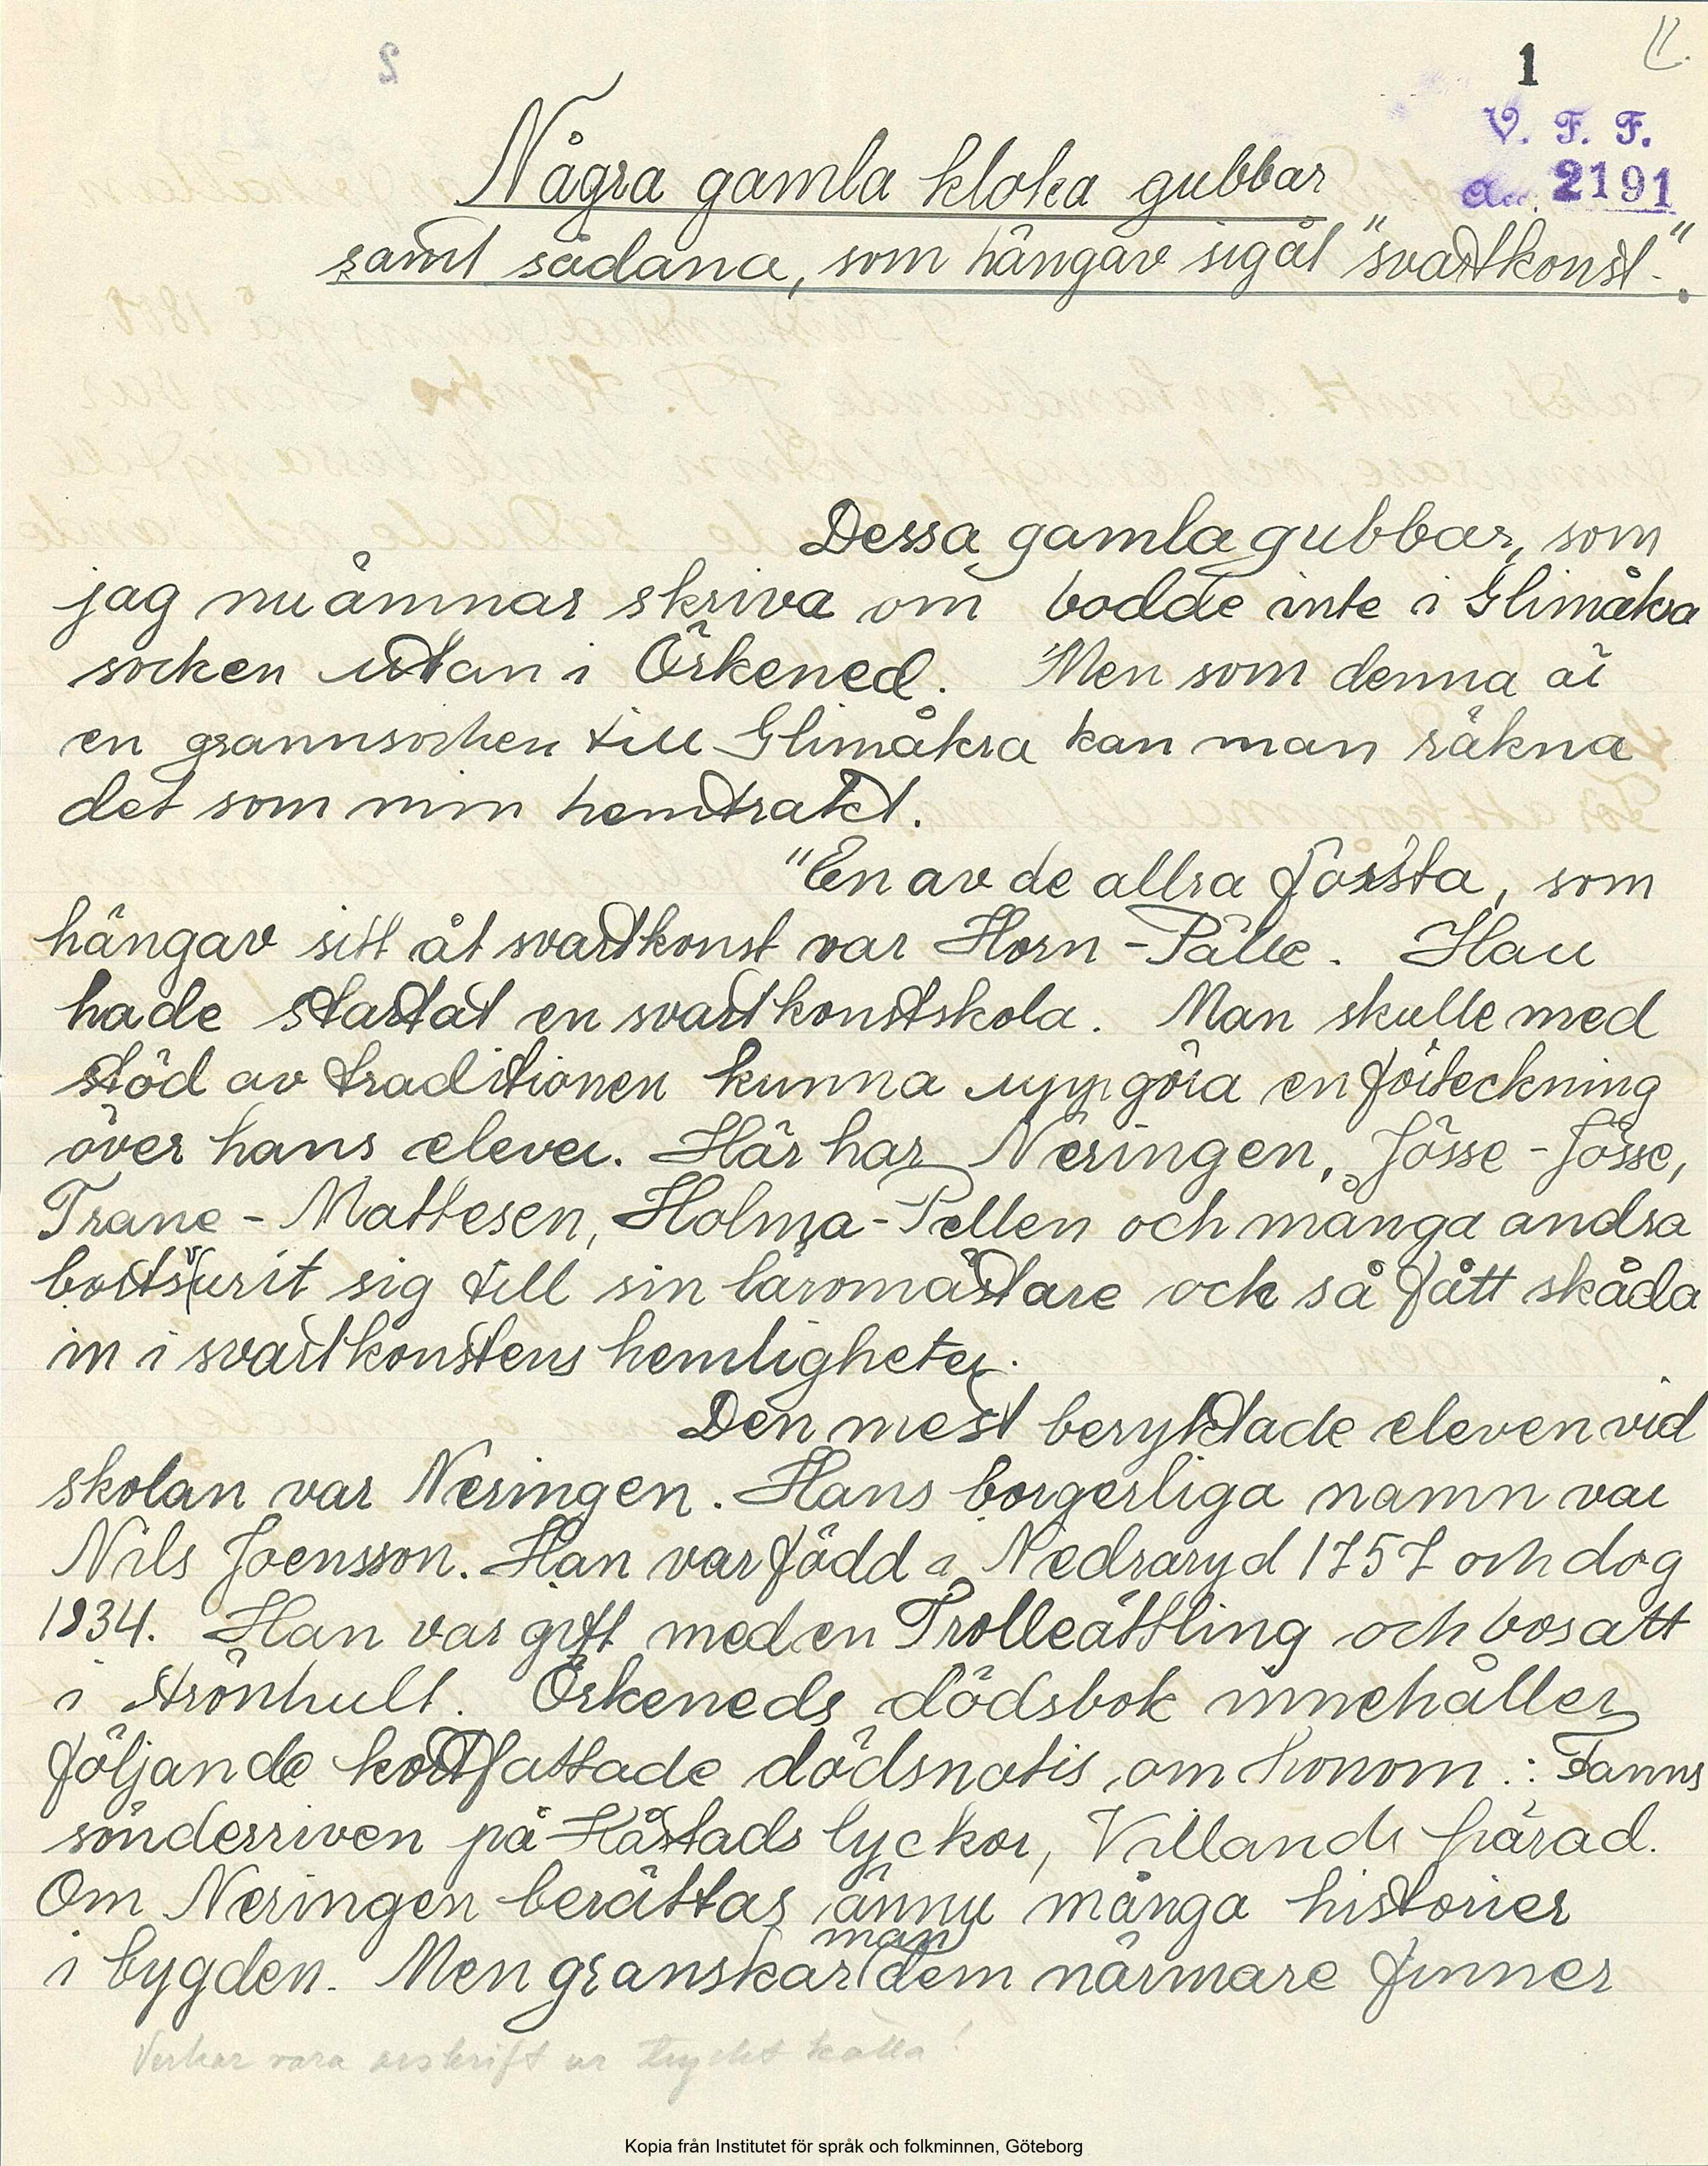 1
V. F. F.
2191
Några gamla kloka gubbar
samt sådana, som hängav sig åt "svartkonst".
Dessa gamla gubbar, som
jag nu ämnar skriva om bodde inte i Glimåkra
socken utan i Örkened. Men som denna är
en grannsocken till Glimåkra kan man räkna
det som min hemtrakt.
"En av de allra första, som
hängav sitt åt svartkonst var Horn-Pälle. Han
hade startat en svartkonstskola. Man skulle med
stöd av traditionen kunna uppgöra en förteckning
över hans elever. Här har Neringen, Jösse-Jösse,
Trane-Mattesen, Holma-Pellen och många andra
sig till sin läromästare och så fått skåda
in i svartkonstens hemligheter.
Den mest beryktade eleven vid
skolan var Neringen. Hans borgerliga namn var
Nils Joensson. Han var född i Nedraryd 1757 och dog
1834. Han var gift med en Trolleättling och bosatt
i Strönhult. Örkeneds dödsbok innehåller
följande kortfattade dödsnotis om honom: Fanns
sönderriven på Håstads lyckor, Villands härad.
Om Neringen berättas ännu många historier
i bygden. Men granskar man dem närmare finner
Verkar vara avskrift ur tryckt källa!
Kopia från Institutet för språk och folkminnen, Göteborg